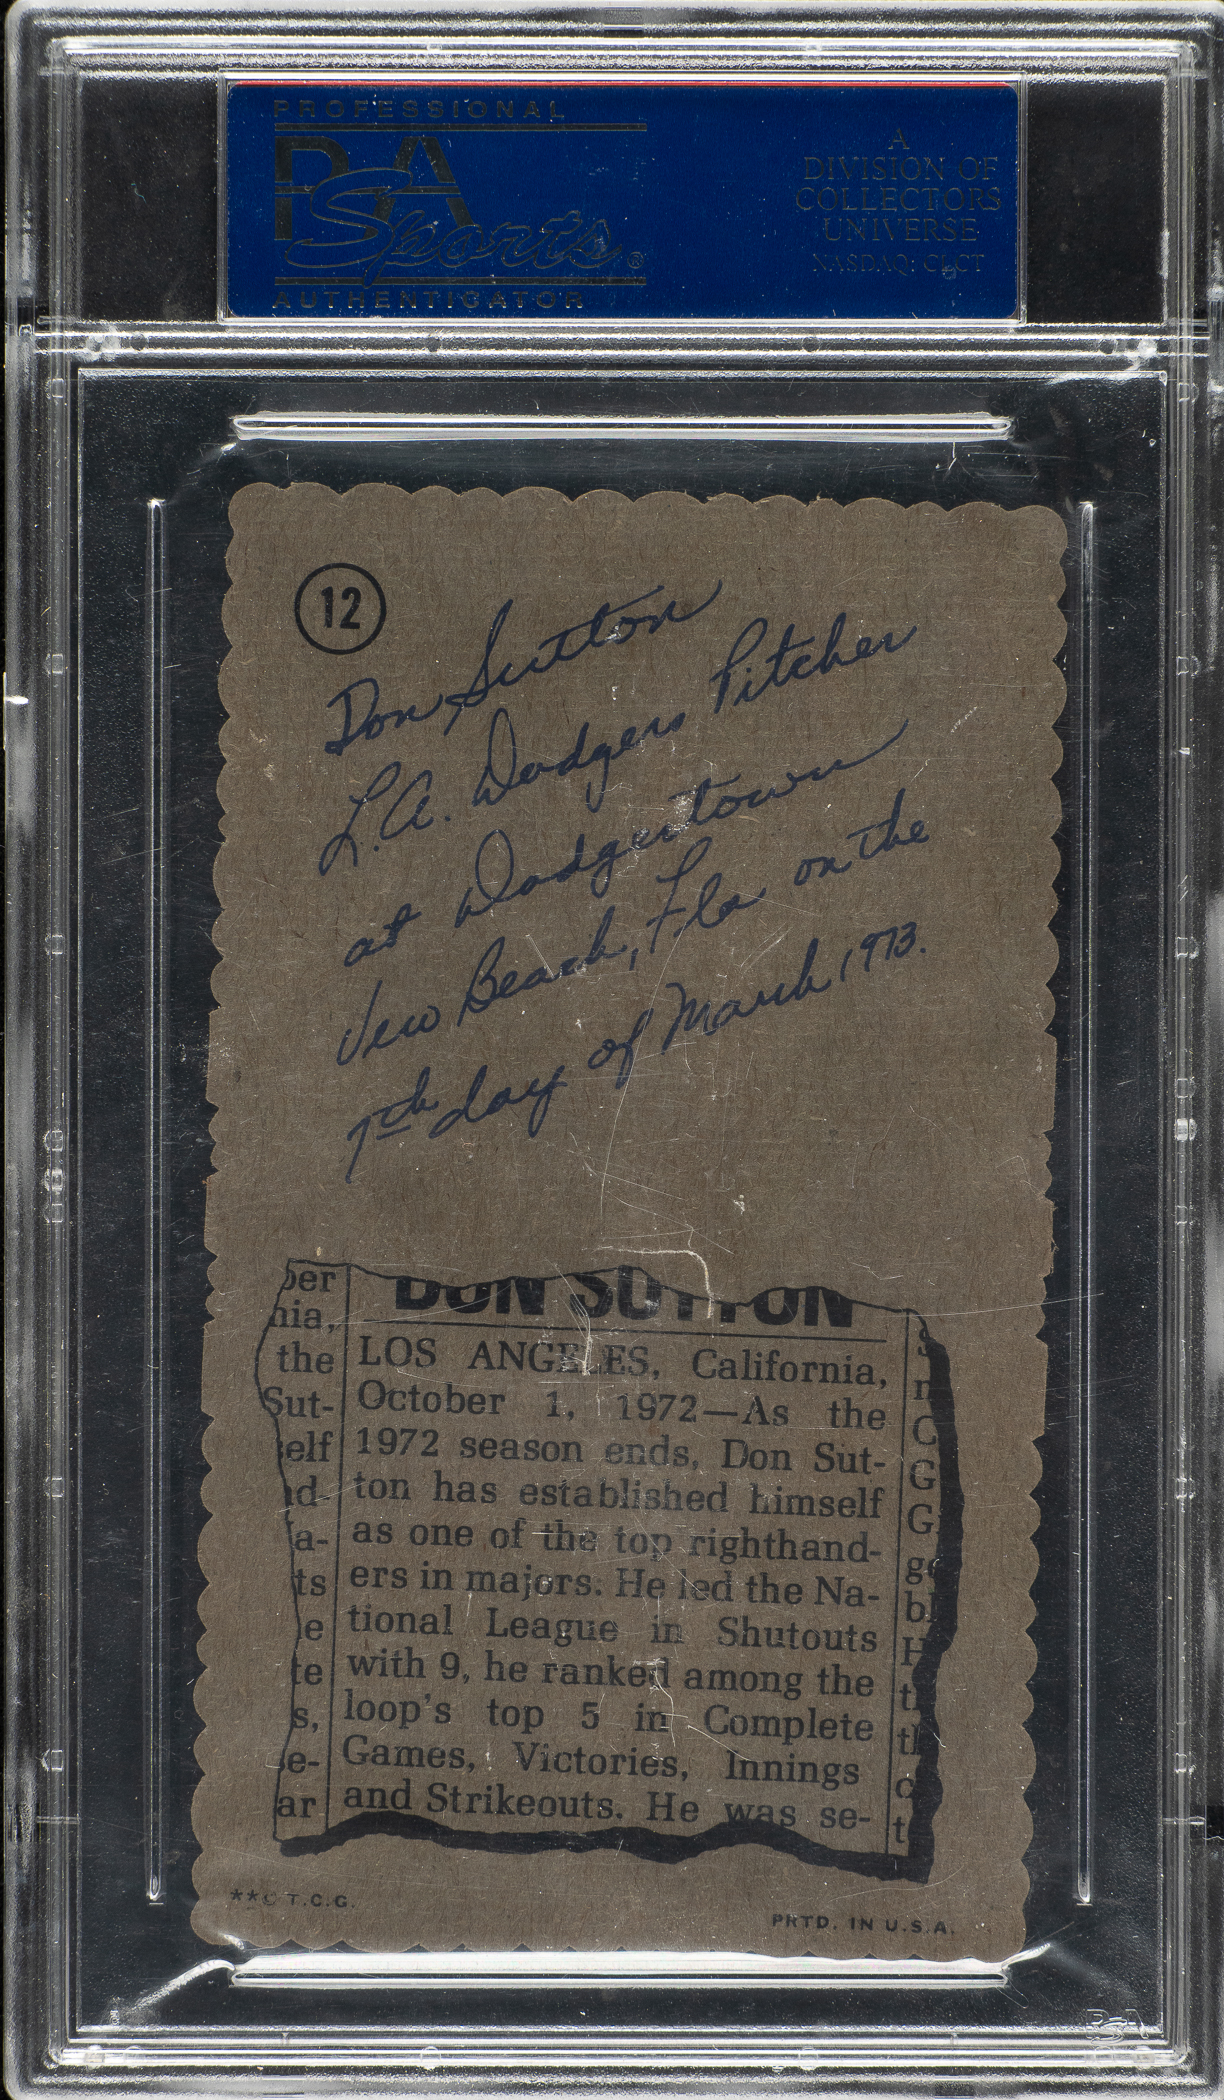 PROFESSIONAL
PSA
Sports®
AUTHENTICATOR
A
DIVISION OF
COLLECTORS
UNIVERSE
NASDAQ: CLCT
12
Don Sutton
L.A. Dodgers Pitcher
at Dodgertown
Vero Beach, Fla on the
7th day of March 1973.
DON SUTTON
LOS ANGELES, California,
October 1, 1972—As the
1972 season ends, Don Sut-
ton has established himself
as one of the top righthand-
ers in majors. He led the Na-
tional League in Shutouts
with 9, he ranked among the
loop's top 5 in Complete
Games, Victories, Innings
and Strikeouts. He was se-
ber
nia,
the
Sut-
elf
nd-
a-
ts
e
te
s,
e-
ar
**© T.C.G.
PRTD. IN U.S.A.
PSA